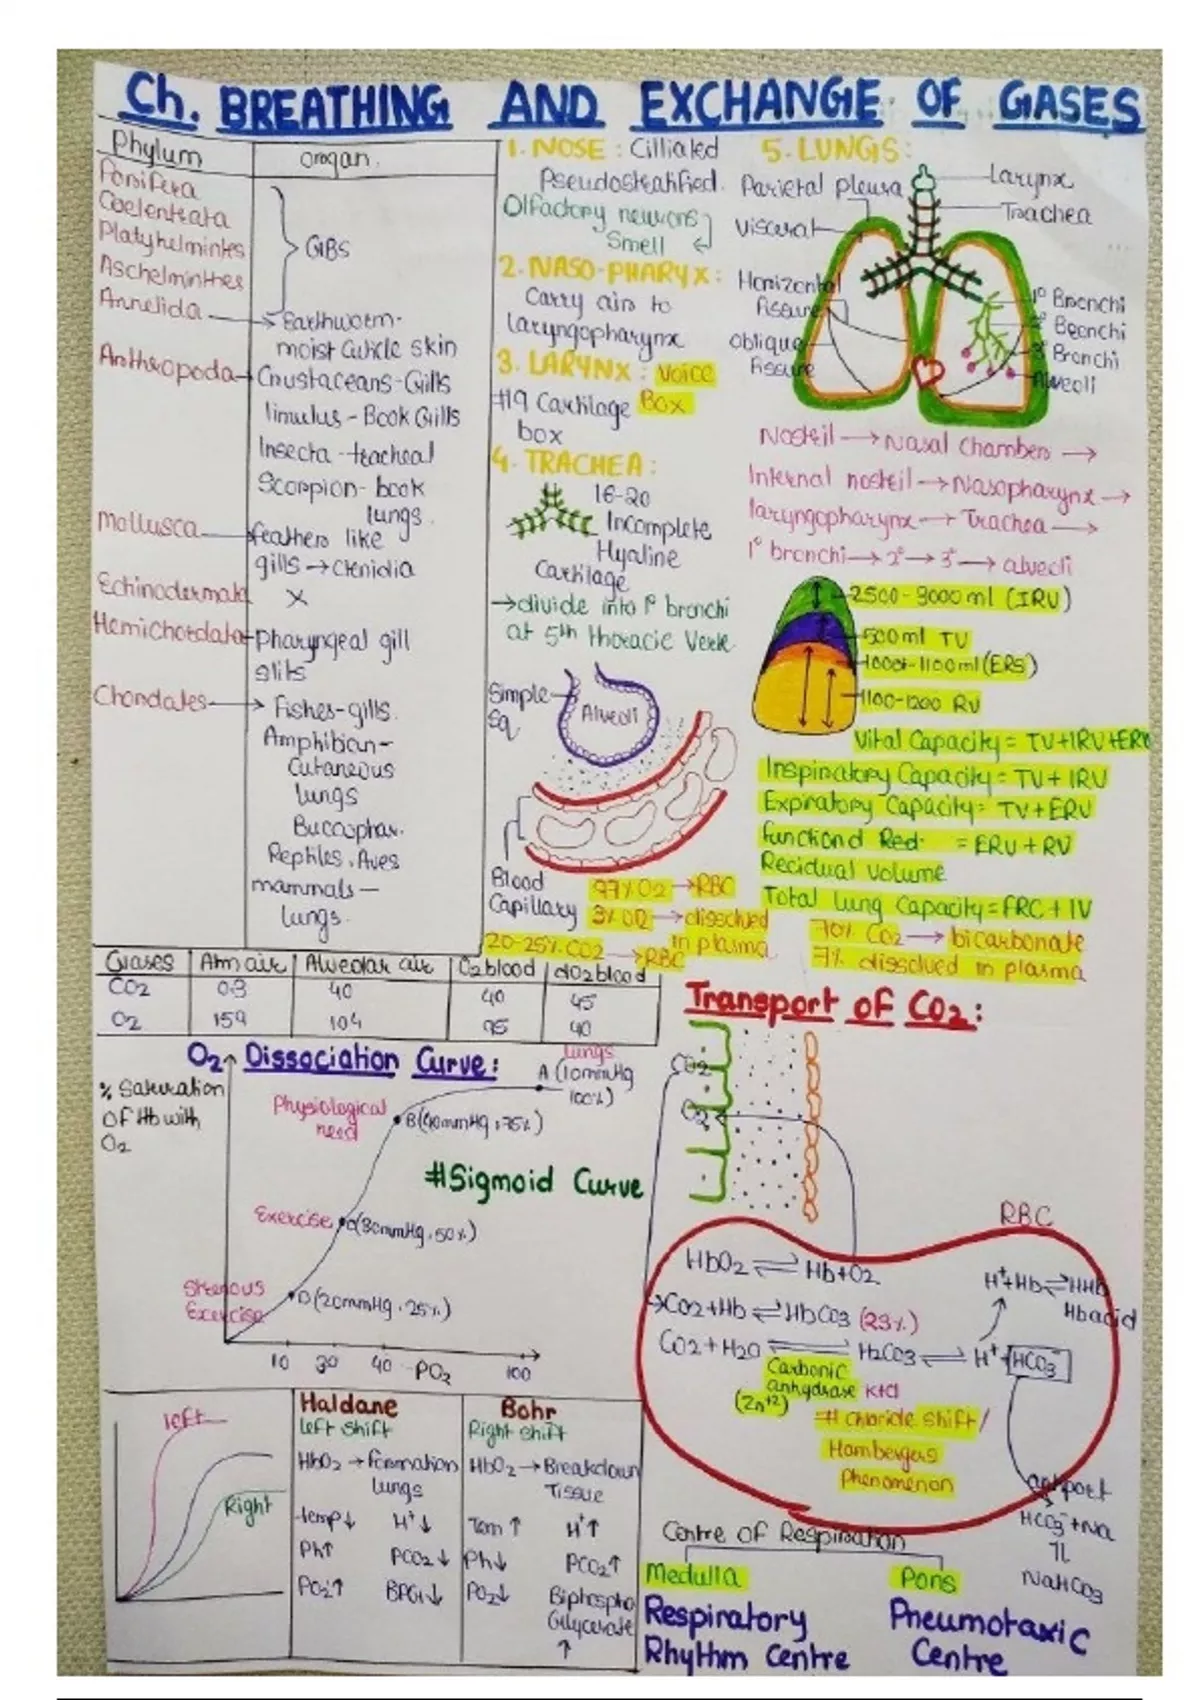 Ch. BREATHING AND EXCHANGE OF GASES
Phylum
organ.
Porifera
Coelentrata
Platyhelmintes
Aschelminthes
Annelida
GIBS
Earthworm-
moist Cuticle skin
Arthropoda
Crustaceans-Gills
limulus - Book Gills
Insecta - tracheal
Scorpion- book
lungs.
Mollusca
feathers like
gills → ctenidia
Echinodermata
X
Hemichordata
Pharyngeal gill
slits
Chordates
Fishes-gills.
Amphibian-
Cutaneous
lungs
Buccophar.
Reptiles, Aves
mammals-
lungs.
1. NOSE : Cilliated
Pseudostratified.
Olfactory neurons
Smell
2. NASO-PHARYX :
Carry air to
laryngopharynx
3. LARYNX : Voice
Box
#9 Cartilage
box
4. TRACHEA :
16-20
Incomplete
Hyaline
Cartilage
→divide into 1° bronchi
at 5th thoracic Verte.
Simple
Sq
Alveoli
Blood
Capillary
97% O2 → RBC
3% O2 → dissolved
in plasma
20-25% CO2 → RBC
5. LUNGS :
Parietal pleura
Visceral
Horizontal
fissure
oblique
fissure
Larynx
Trachea
1° Bronchi
2° Bronchi
3° Bronchi
Alveoli
Nostril → Nasal Chambers →
Internal nostril → Nasopharynx →
laryngopharynx → Trachea →
1° bronchi → 2° → 3° → alveoli
2500-3000 ml (IRV)
500ml TV
1000-1100ml (ERS)
1100-1200 RV
Vital Capacity = TV+IRV+ERV
Inspiratory Capacity = TV + IRV
Expiratory Capacity = TV+ERV
functiond Red. = ERV + RV
Recidual volume
Total lung capacity = FRC + IV
70% CO2 → bicarbonate
7% dissolved in plasma
Gases | Atm air | Alveolar air | O2 blood | dO2 blood
CO2 0.3 40 40 45
O2 159 104 95 40
O2 Dissociation Curve :
% Saturation
of Hb with
O2
Physiological
need
lungs
A (10mmHg
100%)
B(40mmHg, 75%)
#Sigmoid Curve
Exercise
C(30mmHg, 50%)
Strenous
Exercise
D(20mmHg, 25%)
10 30 40 PO2 100
Transport of CO2 :
CO2
O2
RBC
HbO2 ⇌ Hb+O2
H+ + Hb ⇌ HHb
Hb acid
CO2+Hb ⇌ HbCO3 (23%)
CO2+H2O ⇌ H2CO3 ⇌ H+ + HCO3-
Carbonic
anhydrase
(Zn+2)
# chloride shift/
Hambergers
Phenomenon
HCO3- + Na
NaHCO3
left
Right
Haldane
left shift
HbO2 → Formation
lungs
temp↓ H+↓
Ph↑ PCO2↓
PO2↑ BPG↓
Bohr
Right shift
HbO2 → Breakdown
Tissue
Tem ↑ H+↑
Ph↓ PCO2↑
PO2↓ Biphospho
Gilycerate
↑
Centre of Respiration
Medulla
Respiratory
Rhythm Centre
Pons
Pneumotaxic
Centre